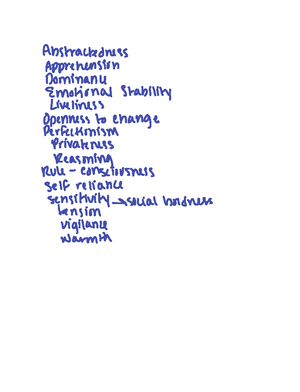 Abstractedness
Apprehension
Dominance
Emotional Stability
Liveliness
Openness to change
Perfectionism
Privateness
Reasoning
Rule - consciousness
Self reliance
Sensitivity → social boldness
tension
vigilance
warmth